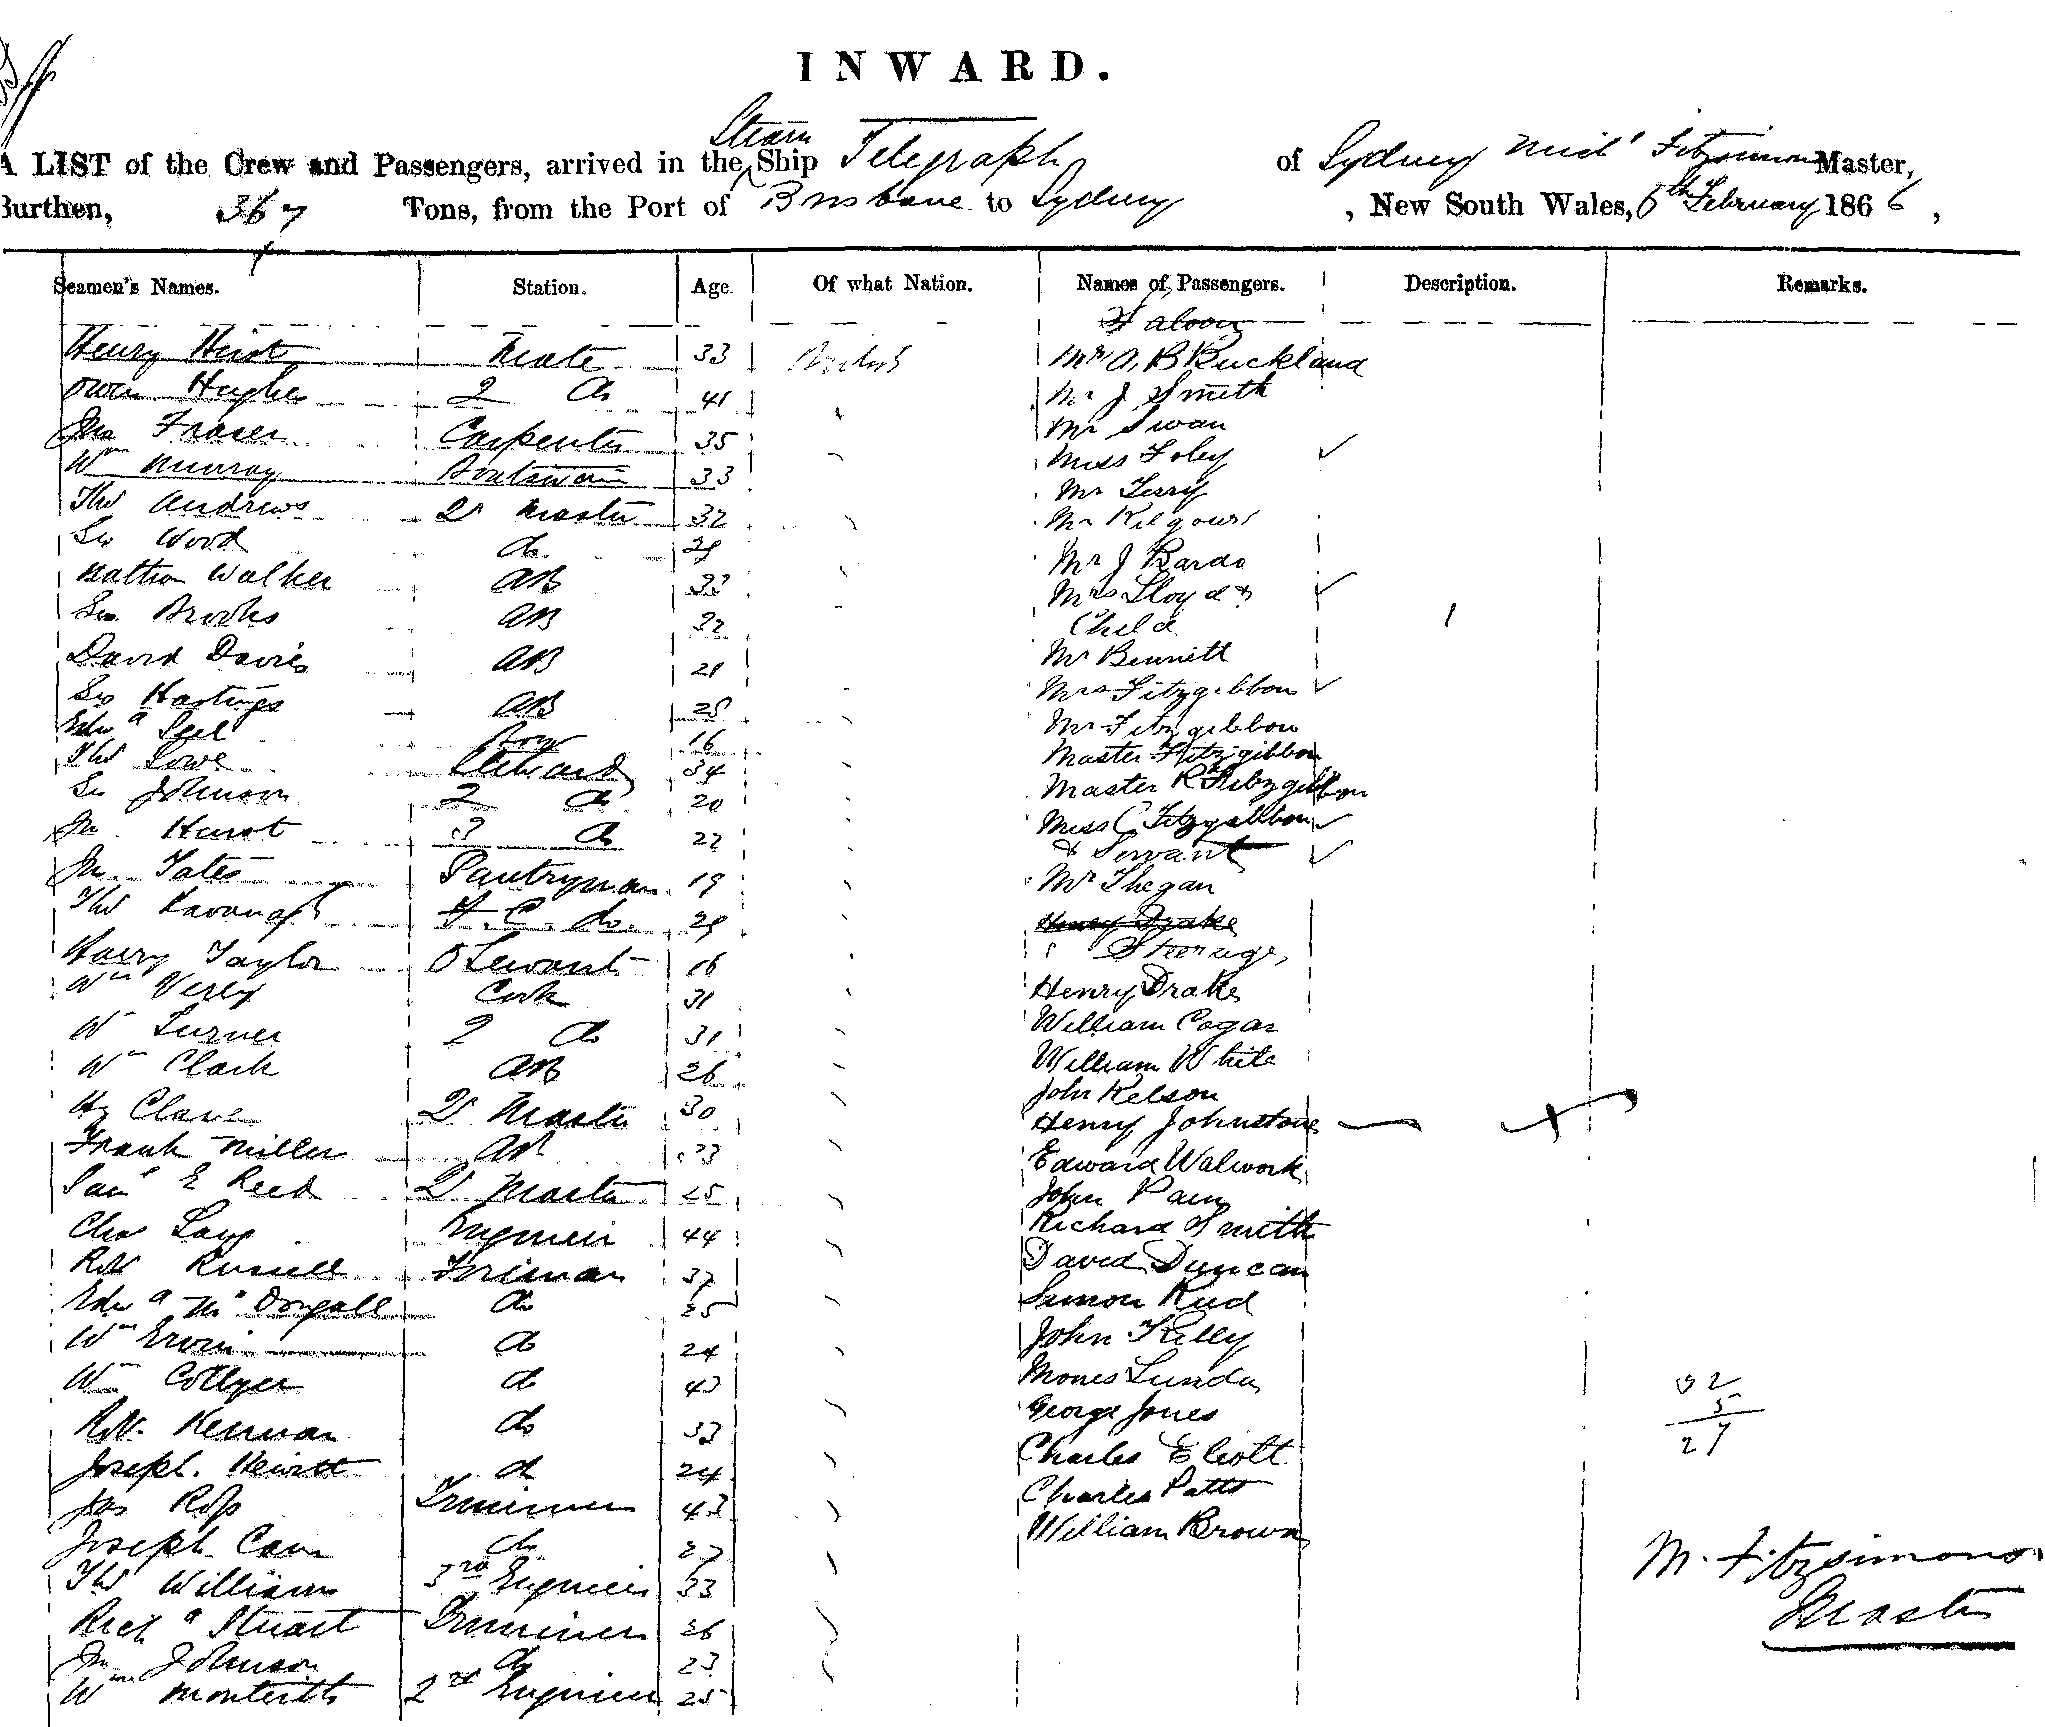 INWARD.
A LIST of the Crew and Passengers, arrived in the Steam Ship Telegraph of Sydney Mich^l Fitzsimons Master,
Burthen, 367 Tons, from the Port of Brisbane to Sydney, New South Wales, 6th February 1866,
Seamen's Names. Station. Age. Of what Nation. Names of Passengers. Description. Remarks.
Saloon
Henry Hirst Mate 33 British Mr A, B Buckland
Owen Hughes 2 do 41 Mr J Smith
Jno Fraser Carpenter 35 Mr Swan
Wm Murray Boatswain 33 Miss Foley
Thos Andrews Qr Master 32 Mr Terry
Geo Wood do 29 Mr Kilgour
Mathew Walker AB 33 Mr J Bardo
Geo Brooks AB 22 Mrs Lloyd &
Child
David Davis AB 21 Mr Bennett
Geo Hastings AB 28 Mrs Fitzgibbon
Edwd Boy 16 Mr Fitzgibbon
Thos Lowe Steward 34 Master Fitzgibbon
Geo Johnson 2 do 20 Master R Fitzgibbon
Jno Hurst 3 do 22 Miss C Fitzgibbon
& Servant
Jno Yates Pantryman 19 Mr Thegan
Thos Kavanagh F. C. do 29 Henry Drake
Steerage,
Harry Taylor Servant 16
Wm Verey Cook 31 Henry Drake
Wm Turner 2 do 31 William Cogar
Wm Clark AB 26 William White
John Kelson
Hy Clare Qr Master 30 Henry Johnstone
Frank Miller AB 23 Edward Walwork
Saml E Reed Qr Master 25 John
Chas Engineer 44 Richard Smith
Robt Russell Foreman 37 David Duncan
Edwd McDougall do 25 Simon
Wm do 24 John Kelly
Wm Collyer do 43 Lunda
Robt. Kernan do 33 George Jones
Joseph Hewitt do 24 Charles Eliott
Jas Ross Trimmer 43 Charles Patts
Joseph do 27 William Brown
Thos Williams 3rd Engineer 33
Richd Stuart Trimmer 26
Jno Johnson do 23
Wm Monteith 2nd Engineer 25
32
5
27
M. Fitzsimons
Master